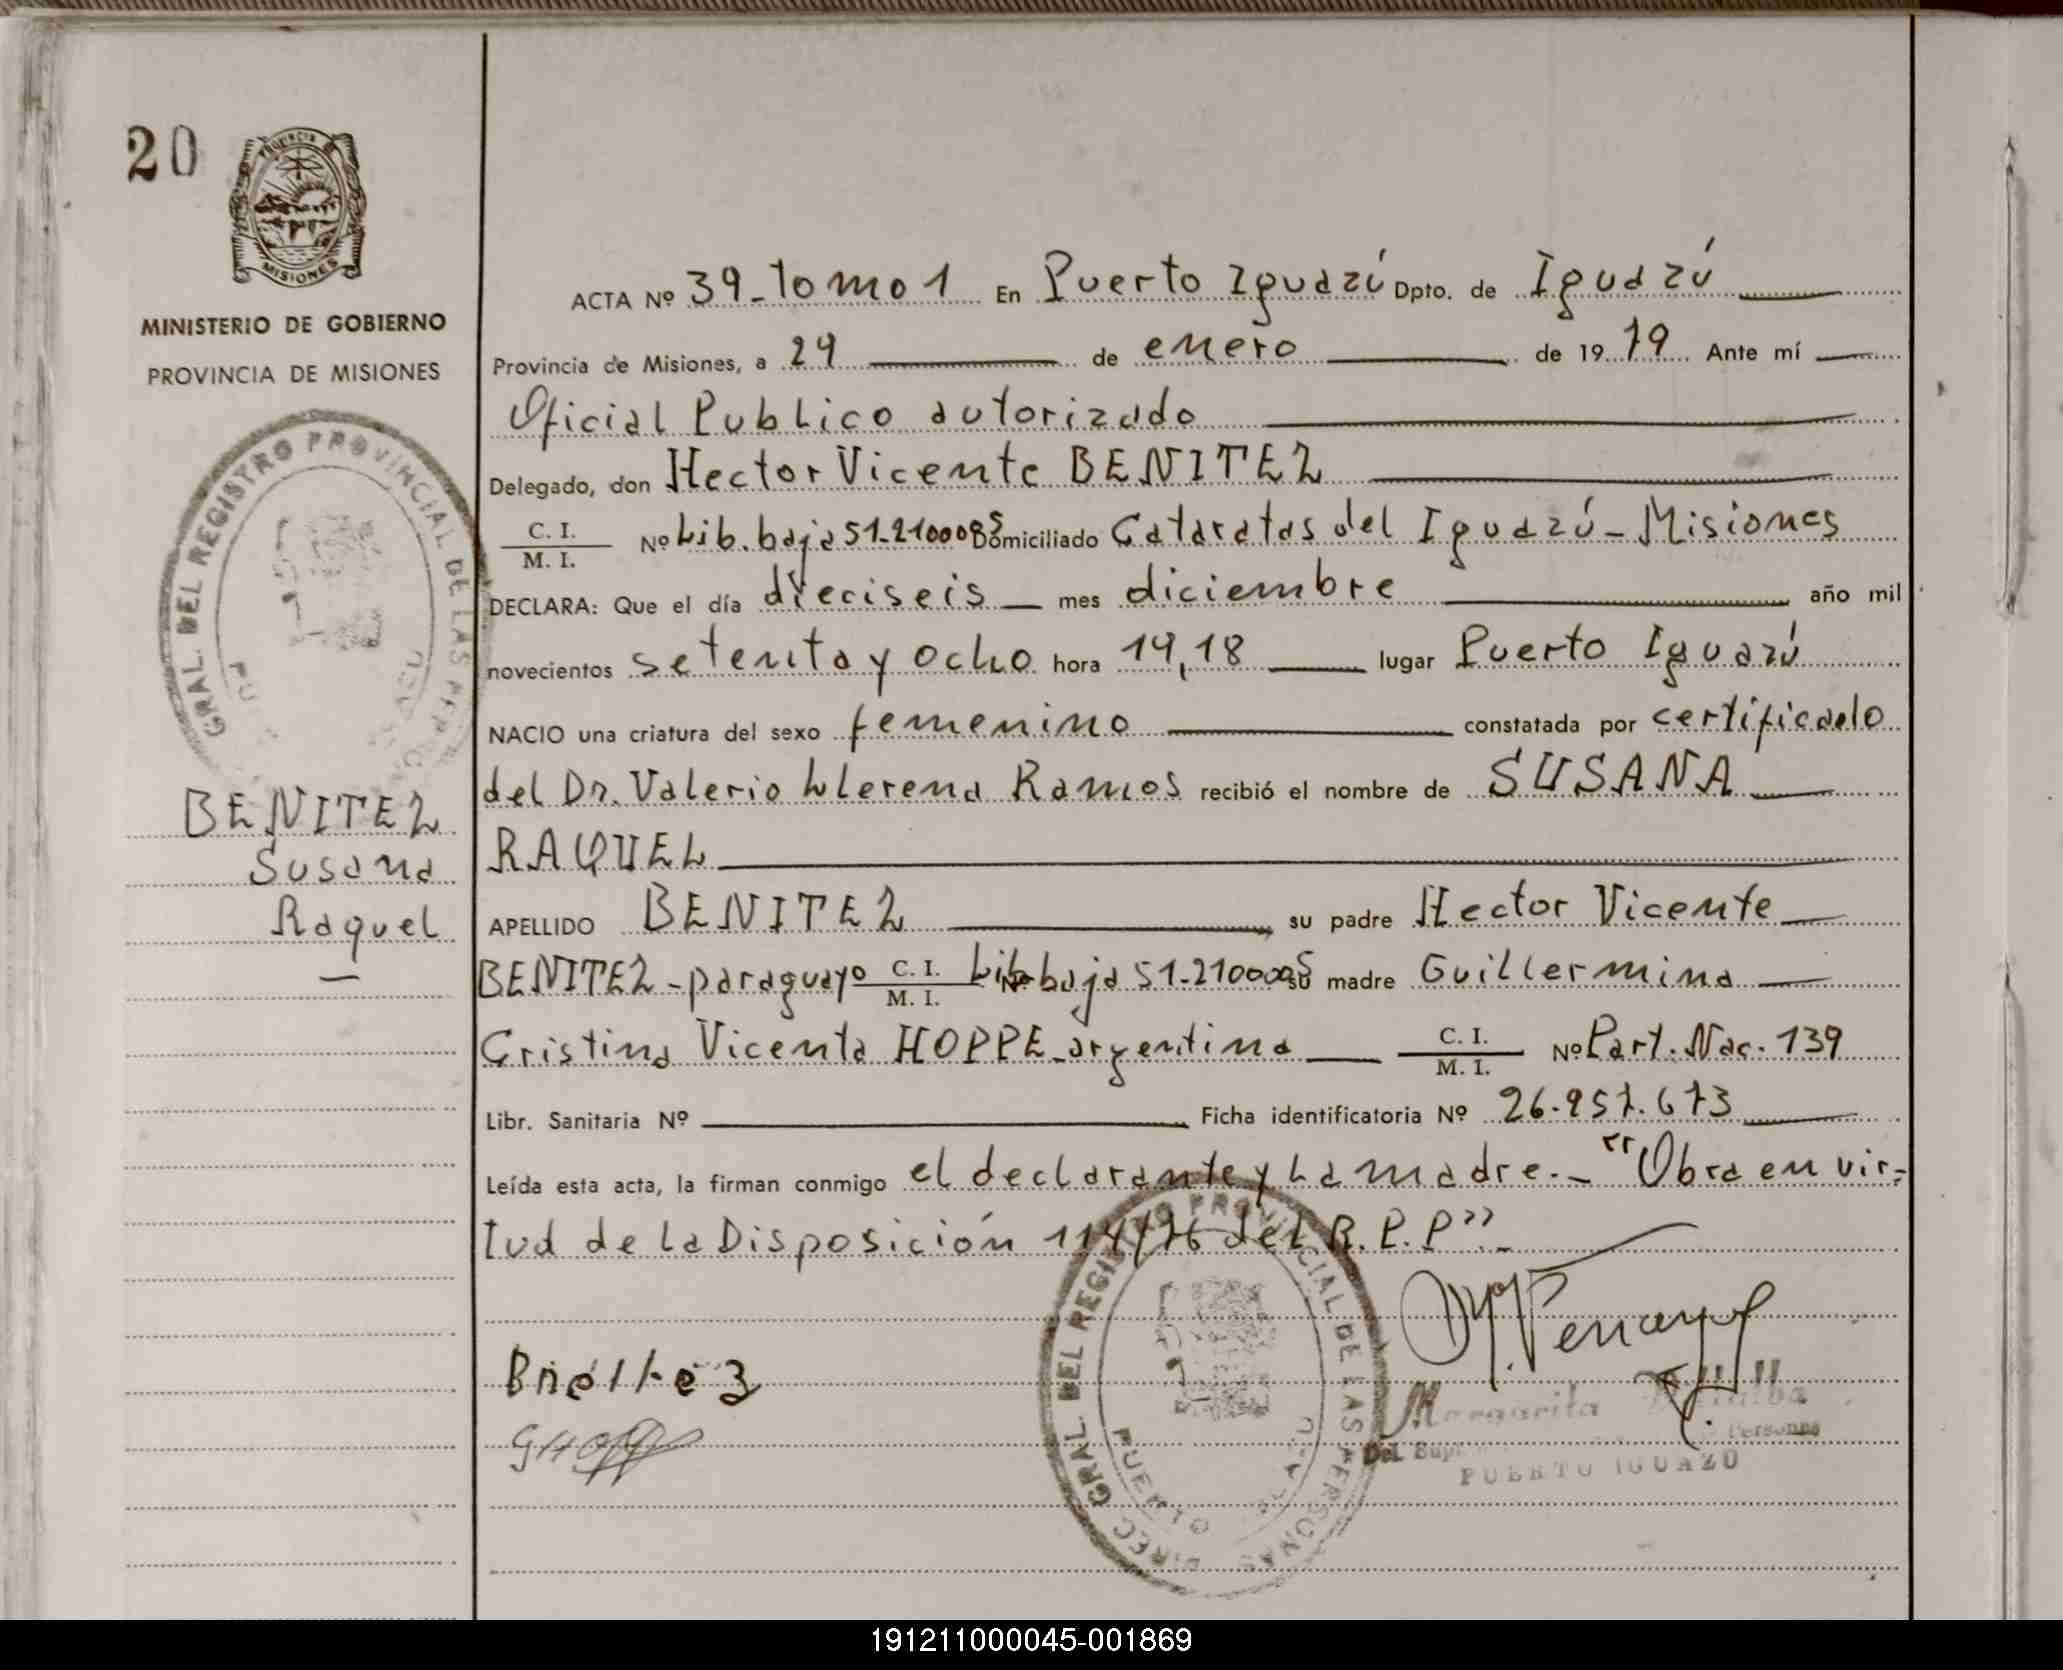 20
PROVINCIA
MISIONES
MINISTERIO DE GOBIERNO
PROVINCIA DE MISIONES
GRAL. DEL REGISTRO PROVINCIAL DE LAS
BENITEZ
Susana
Raquel
ACTA Nº 39-Tomo 1 En Puerto Iguazú Dpto. de Iguazú
Provincia de Misiones, a 29 de enero de 1979 Ante mí
Oficial Publico autorizado
Delegado, don Hector Vicente BENITEZ
C. I.
M. I.
Nº Lib. baja 51-2100085 Domiciliado Cataratas del Iguazú - Misiones
DECLARA: Que el día dieciseis mes diciembre año mil
novecientos setenta y ocho hora 19,18 lugar Puerto Iguazú
NACIO una criatura del sexo femenino constatada por certificado
del Dr. Valerio Llerena Ramos recibió el nombre de SUSANA
RAQUEL
APELLIDO BENITEZ su padre Hector Vicente
BENITEZ - paraguayo C. I. M. I. Nº Lib. baja su madre Guillermina
Cristina Vicenta HOPPE - argentina C. I. M. I. Nº Part. Nac. 139
Libr. Sanitaria Nº Ficha identificatoria Nº 26.957.673
Leída esta acta, la firman conmigo el declarante y La madre.- "Obra en vir-
tud de la Disposición 114/76 del R.P.P".-
DIREC. GRAL. DEL REGISTRO PROVINCIAL DE LAS PERSONAS
PUERTO IGUAZU
Margarita
PUERTO IGUAZU
191211000045-001869